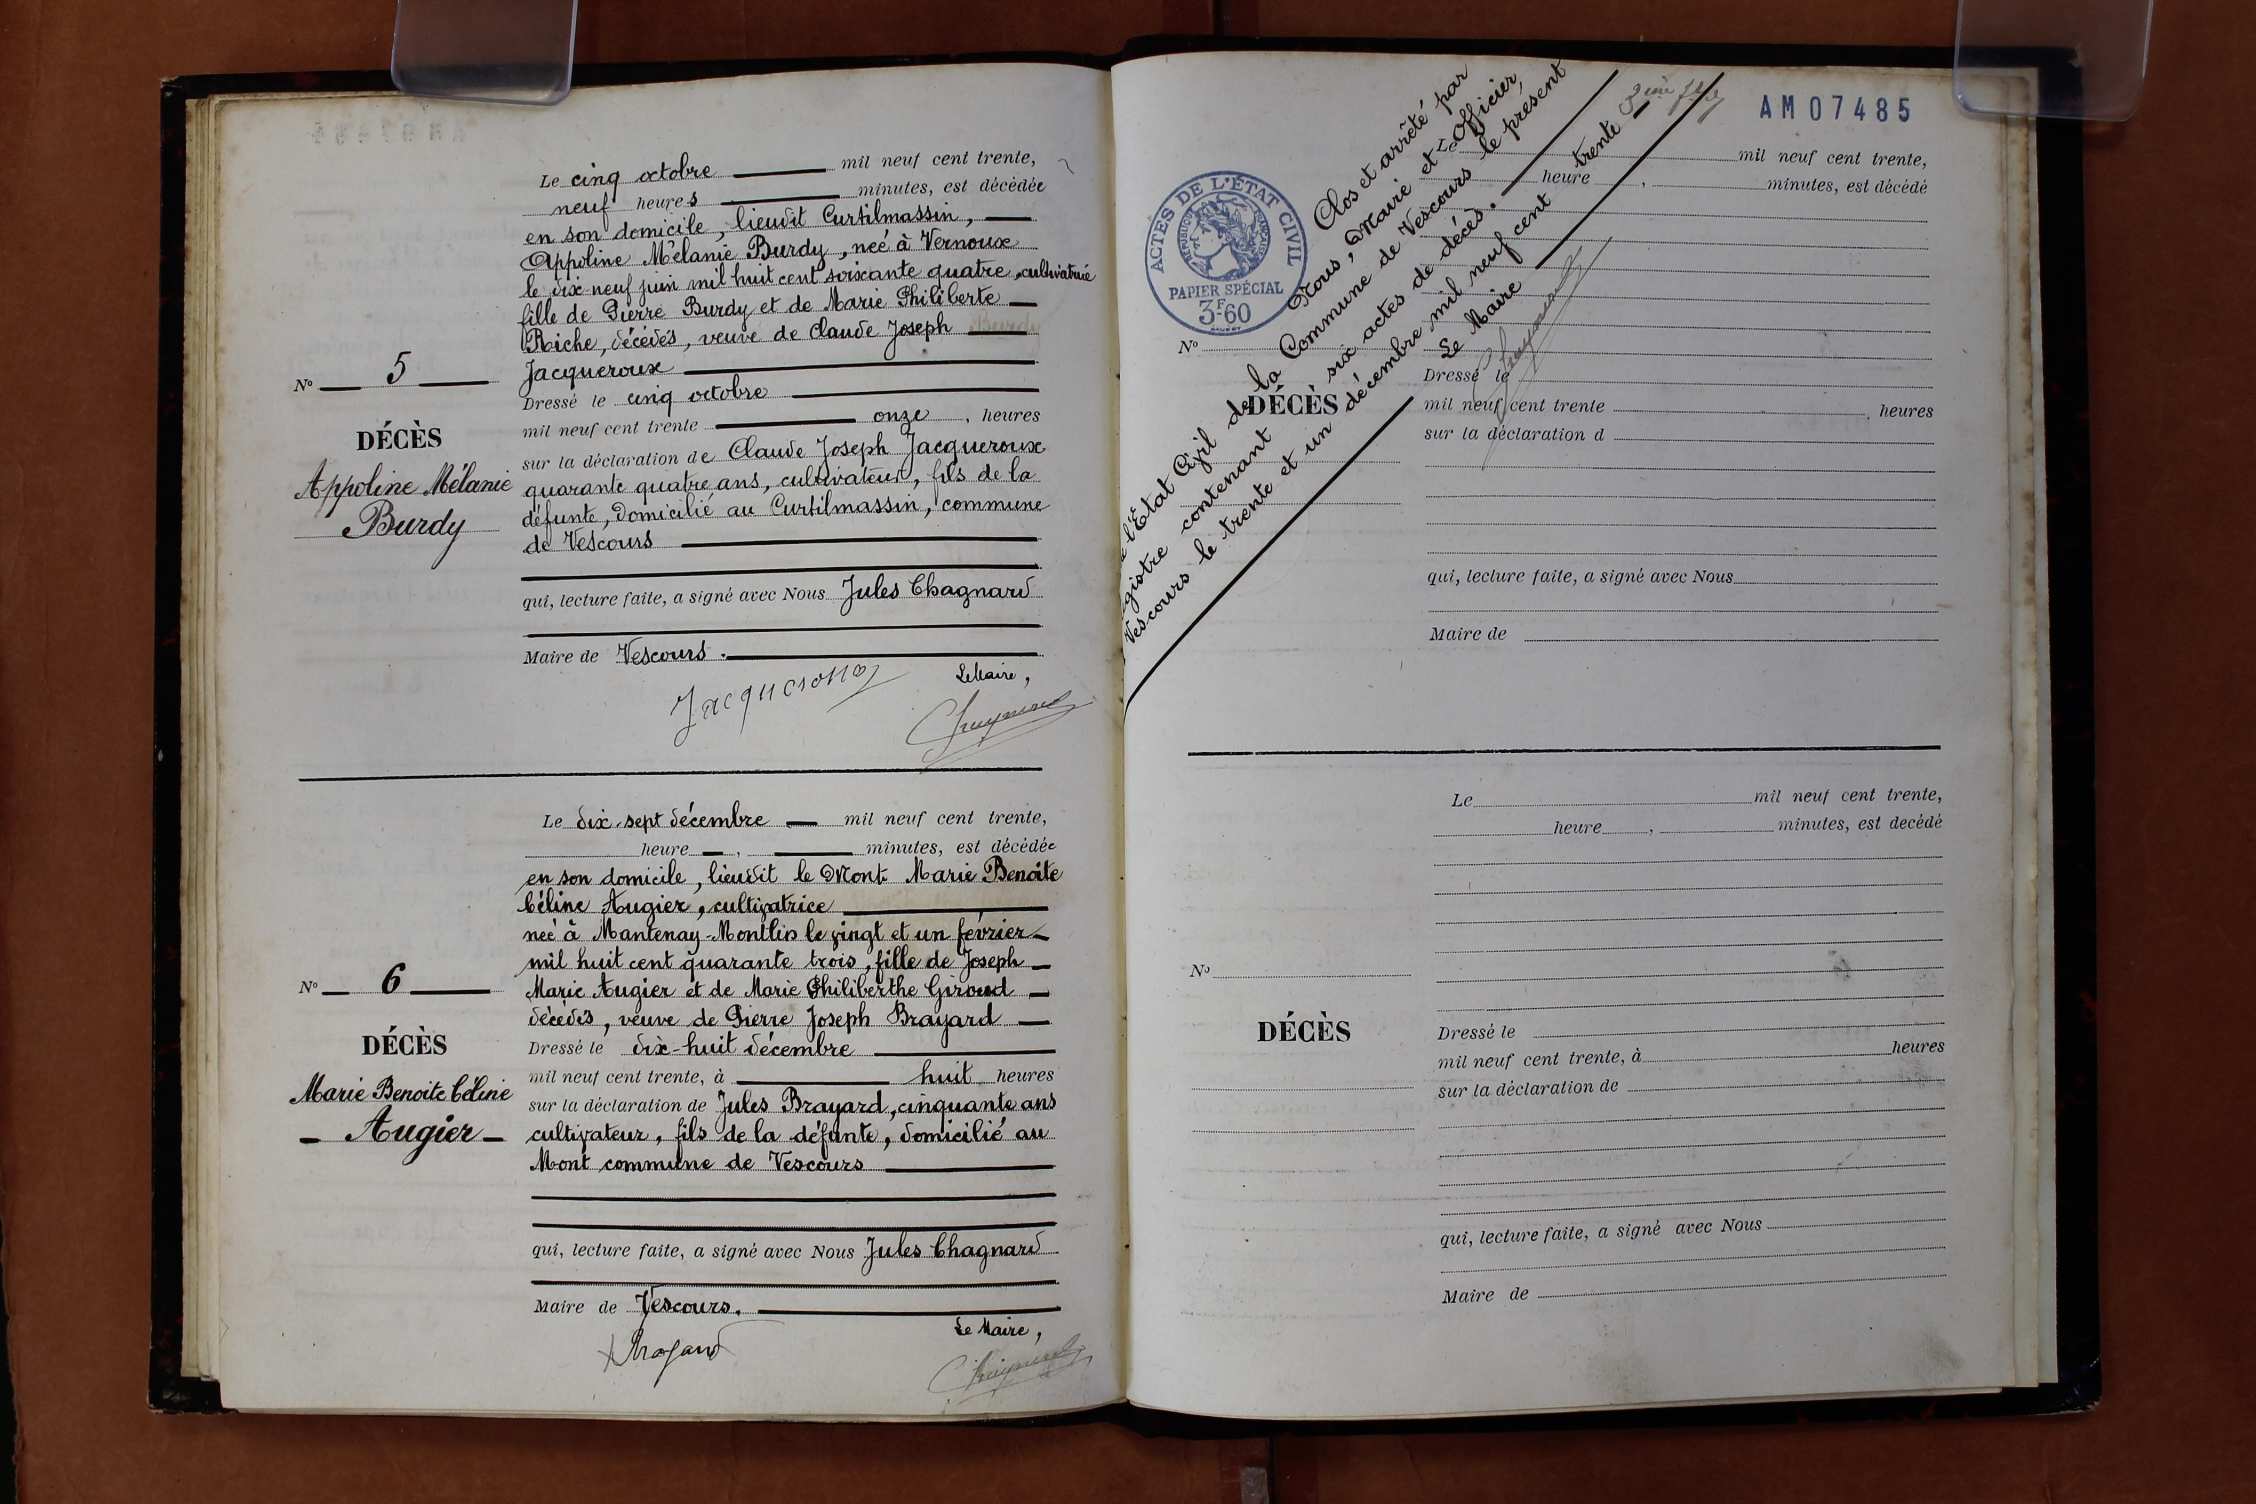 Le cinq octobre mil neuf cent trente,
neuf heures minutes, est décédée
en son domicile, lieudit Curtilmassin,
Appoline Mélanie Burdy, neé à Vernoux
le dix neuf juin mil huit cent soixante quatre, cultivatrice
fille de Pierre Burdy et de Marie Philiberte
Riche, décédés, veuve de Claude Joseph
Jacqueroux
N° 5
DÉCÈS
Appoline Mélanie
Burdy
Dressé le cinq octobre
mil neuf cent trente onze, heures
sur la déclaration de Claude Joseph Jacqueroux
quarante quatre ans, cultivateur, fils de la
défunte, domicilié au Curtilmassin, commune
de Vescours
qui, lecture faite, a signé avec Nous Jules Chagnard
Maire de Vescours.
Le Maire,
Jacqueroux
Le dix-sept décembre mil neuf cent trente,
heure , minutes, est décédée
en son domicile, lieudit le Mont Marie Benoite
Céline Augier, cultivatrice
neé à Mantenay-Montlin le vingt et un février
mil huit cent quarante trois, fille de Joseph
Marie Augier et de Marie Philiberthe Giroud
décédés, veuve de Pierre Joseph Brayard
N° 6
DÉCÈS
Marie Benoite Céline
Augier
Dressé le dix-huit décembre
mil neuf cent trente, à huit heures
sur la déclaration de Jules Brayard, cinquante ans
cultivateur, fils de la défunte, domicilié au
Mont commune de Vescours
qui, lecture faite, a signé avec Nous Jules Chagnard
Maire de Vescours.
Le Maire,
Brayard
AM07485
ACTES DE L'ÉTAT CIVIL
RÉPUBLIQUE FRANÇAISE
PAPIER SPÉCIAL
3F60
Clos et arrêté par
Nous, Maire et Officier
de l'Etat Civil de la Commune de Vescours le présent
registre contenant six actes de décès.
Vescours le trente et un décembre mil neuf cent trente
Le Maire
Le mil neuf cent trente,
heure , minutes, est décédé
N°
DÉCÈS
Dressé le
mil neuf cent trente , heures
sur la déclaration d
qui, lecture faite, a signé avec Nous
Maire de
Le mil neuf cent trente,
heure , minutes, est decédé
N°
DÉCÈS
Dressé le
mil neuf cent trente, à heures
sur la déclaration de
qui, lecture faite, a signé avec Nous
Maire de